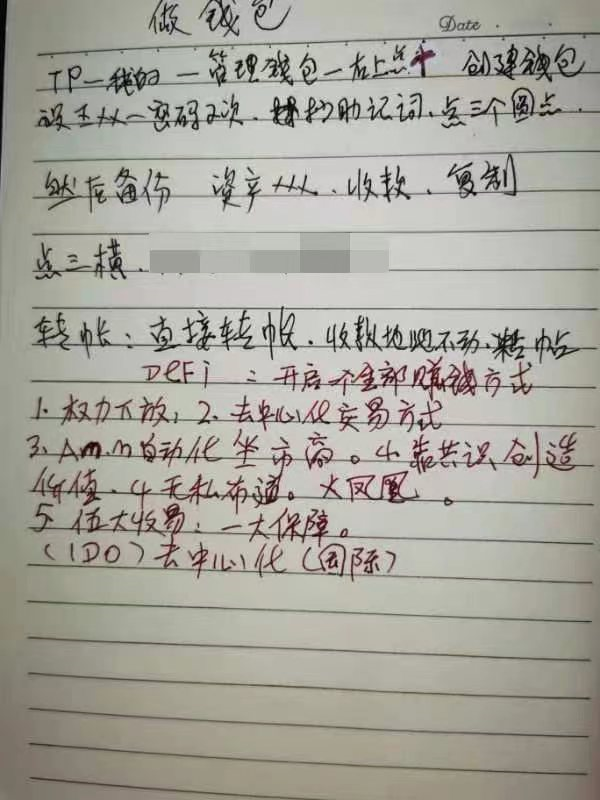 做钱包
Date
TP—我的—管理钱包—右上点+ 创建钱包
设王从一密码2次、抄助记词、点三个圆点
然后备份 资产从、收款、复制
点三横、
转帐：直接转帐、收款地址不动、转帖
DeFi：开启个全部赚钱方式
1、权力下放；2、去中心化交易方式
3、Am.m自动化坐市商。4、靠共识创造
价值、4无私布道。火凤凰。
5、伍大收易：一大保障。
(IDO)去中心化(国际)